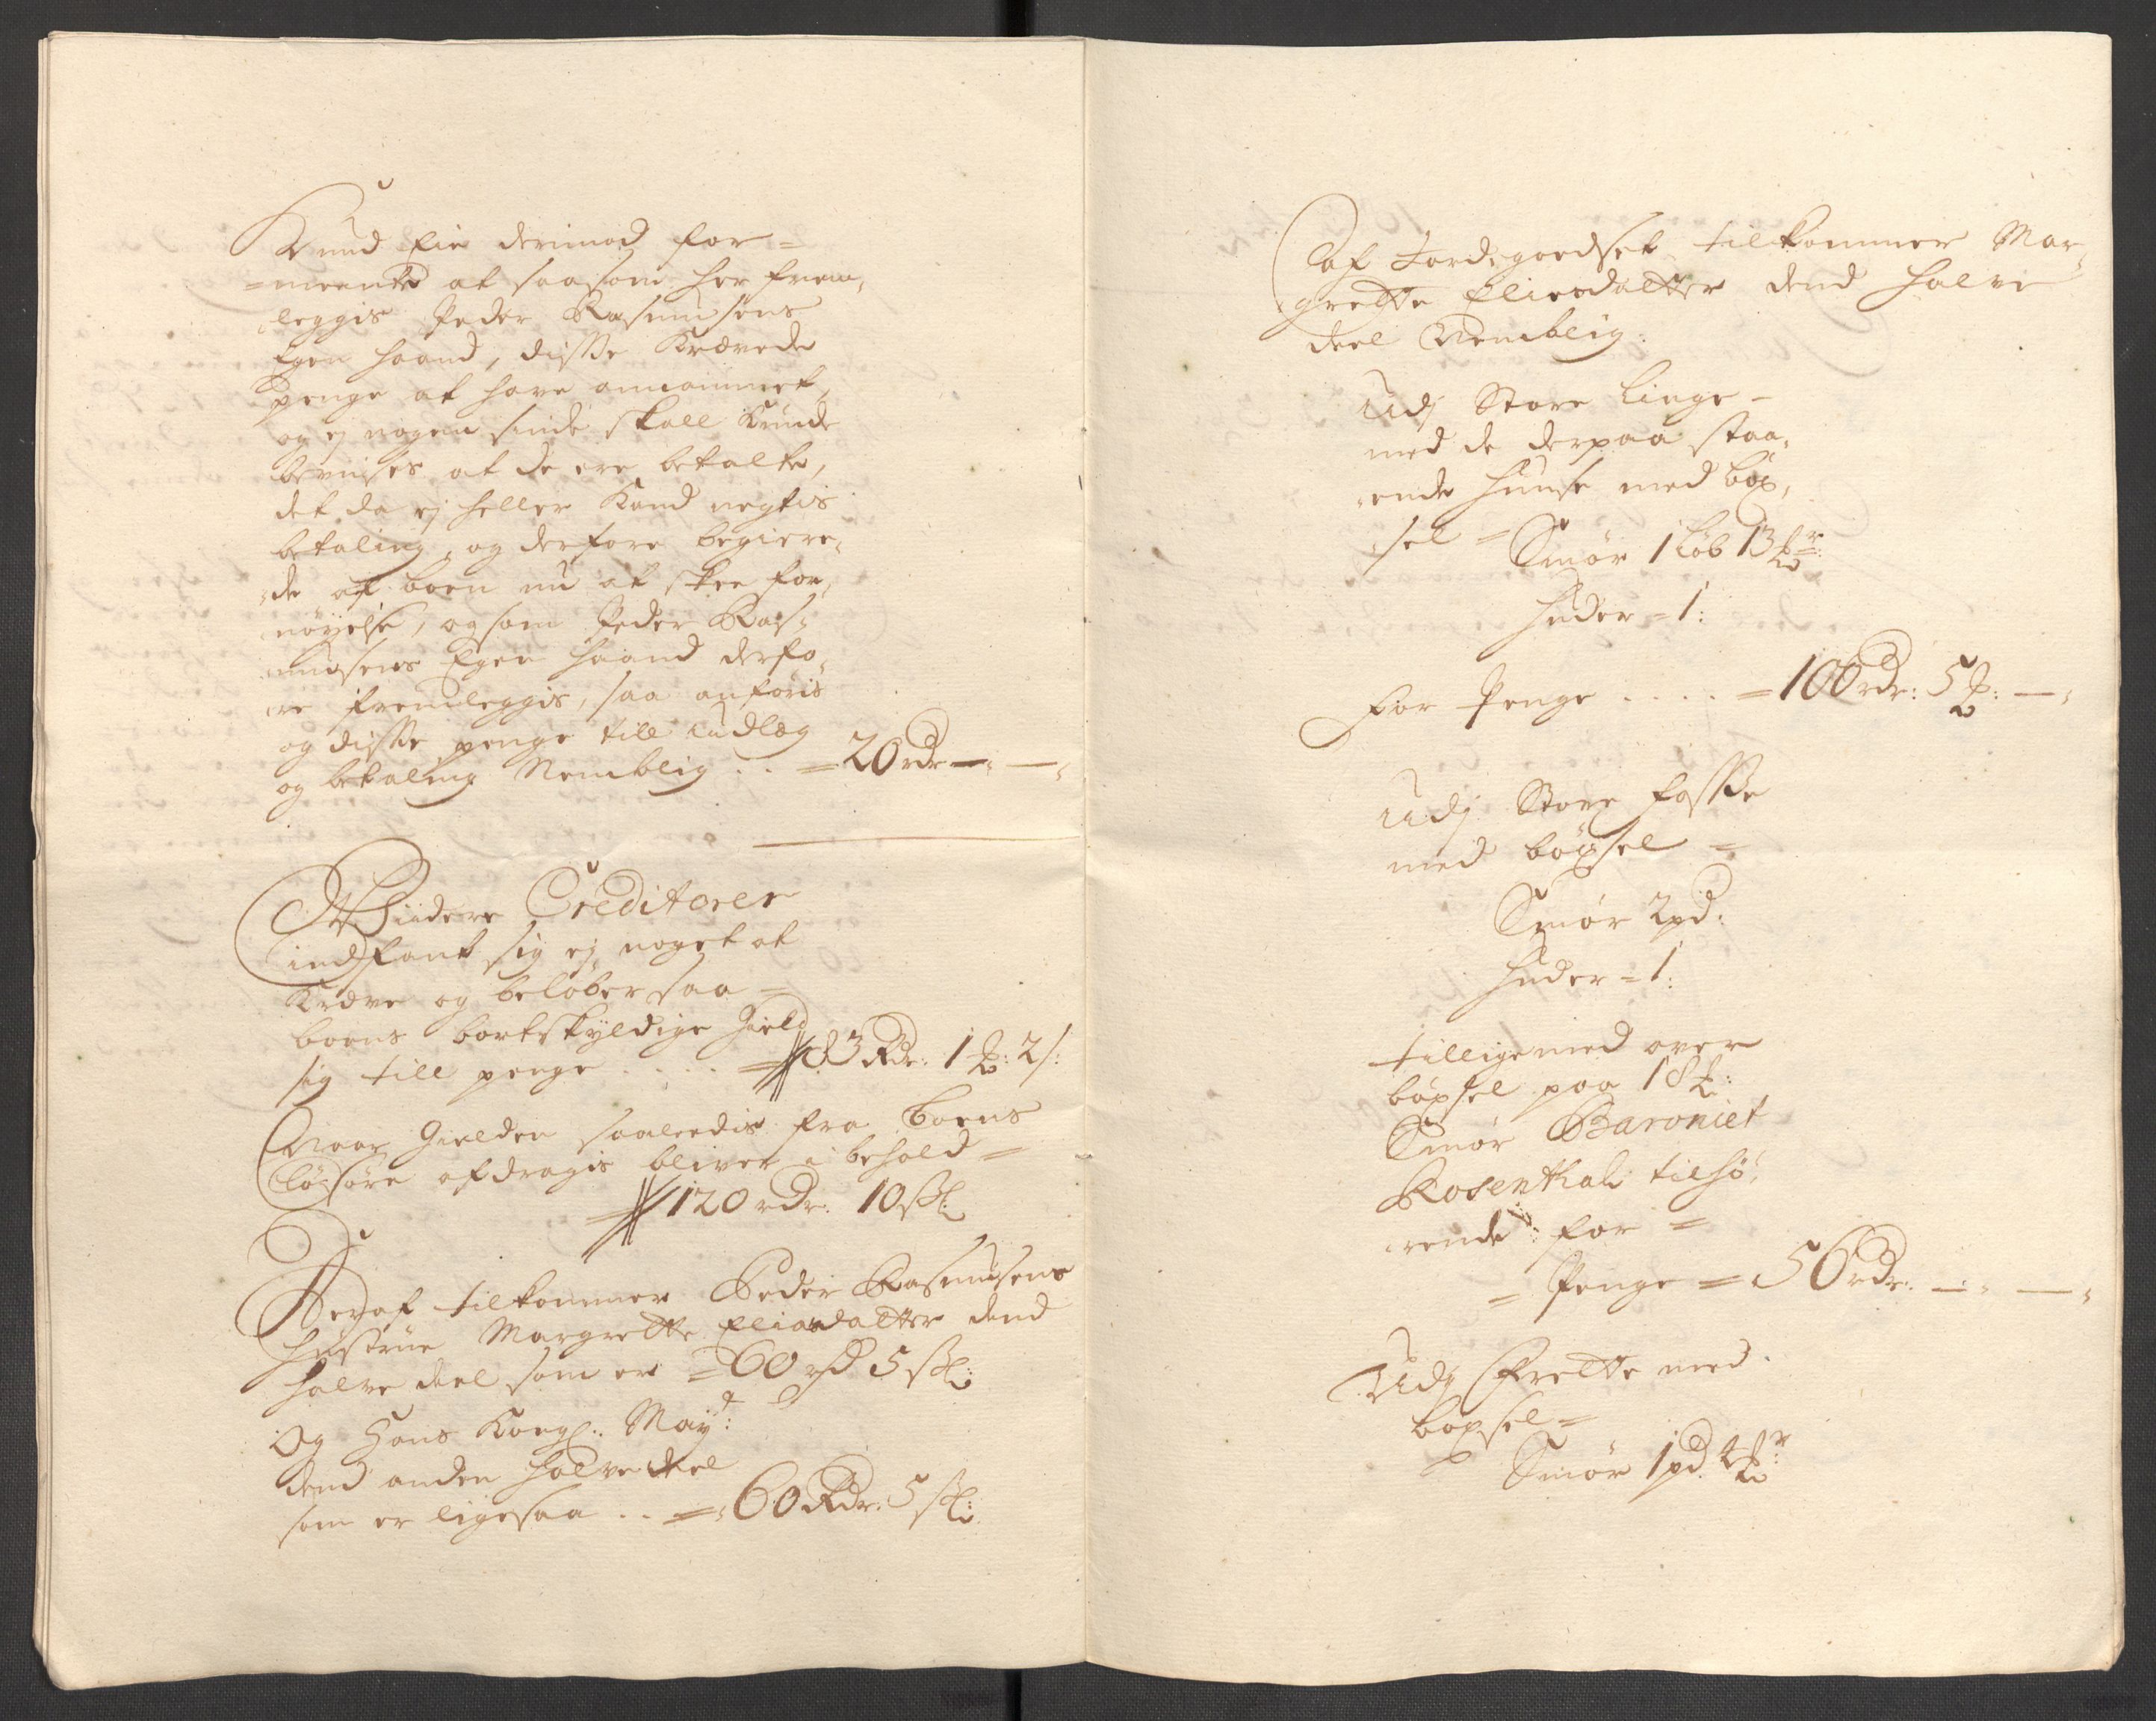 Knud Eie derimod for=
=meente at saasom her frem,
leggis Peder Rasmusens
Egen haand, disse Krævede
penge at have annammet,
og ej nogen sinde skall Kunde
bevises at de ere betalte,
det da ej heller Kand negtis
betaling, og derfore begiere,
de af boen nu at skee for,
nøyelse, og som Peder Ras,
musens Egen haand derfo,
re fremleggis, saa anføris
og disse penge till Udlæg
og betaling Nemblig .. = 20 rdr — —
Viidere Creditorer
indfant sig ej noget at
Kræve og beløber saa =
boens bortskyldige Gield
sig till penge .... = 83 Rdr: 1 ℔: 2 s:
Naar Gielden saaledis fra Boens
Løsøre afdragis bliver i behold =
= 120 rdr: 10 sk:
Deraf tilkommer Peder Rasmusens
Hustrue Margrette Eliasdatter dend
halve deel som er = 60 rd 5 sk:
Og Hans Kongl: Mayt:
dend anden halve deel
som er ligesaa .. = 60 Rdr. 5 sk:
Af Jordegodset tilkommer Mar,
grette Eliasdatter dend halve
deel Nemblig:
Udj Store Linge -
med de derpaa staa,
ende Huuse med böx,
sel = Smör 1 Løb 13 ℔r:
Huder = 1:
For Penge .... = 100 rdr: 5 ℔: —
Udj Store Fosse
med böxsel =
Smör 2 pd:
Huder = 1:
tilligemed over
böxsel paa 18 ℔:
Smör Baroniet
Rosenthal tilhö,
rende: for =
= Penge = 56 rdr. — —
Udj Frette med
böxsel =
Smör 1 pd. 4 ℔r: